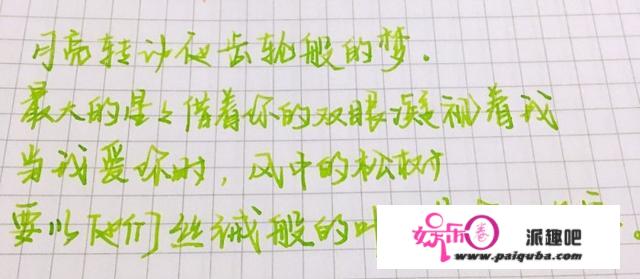 月亮转动他齿轮般的梦.
最大的星々借着你的双眼凝视着我
当我爱你时，风中的松树
要以他们丝线般的叶
娱乐圈 派趣吧
www.paiquba.com